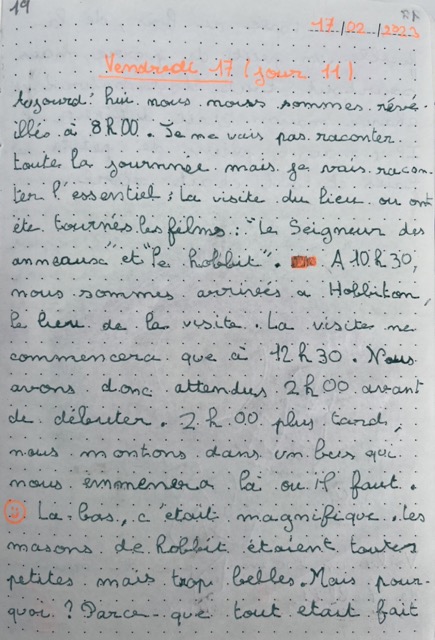 19
17/22/2023
Vendredi 17 (jour 11)
Aujourd'hui nous nous sommes rêvé-
illés à 8h00. Je ne vais pas raconter
toute la journnée mais je vais racon-
ter l'essentiel; la visite du lieu ou ont
été tournés les films: "Le Seigneur des
anneaux" et "le hobbit". A 10h30,
nous sommes arrivés a Hobbiton,
le lieu de la visite. La visite ne
commencera que à 12h30. Nous
avons donc attendus 2h00 avant
de débuter. 2h00 plus tard,
nous montions dans un bus qui
nous emmenera là ou il faut.
La bas, c'était magnifique. les
masons de hobbit étaient toutes
petites mais trop belles. Mais pour-
quoi? Parce-que tout etait fait